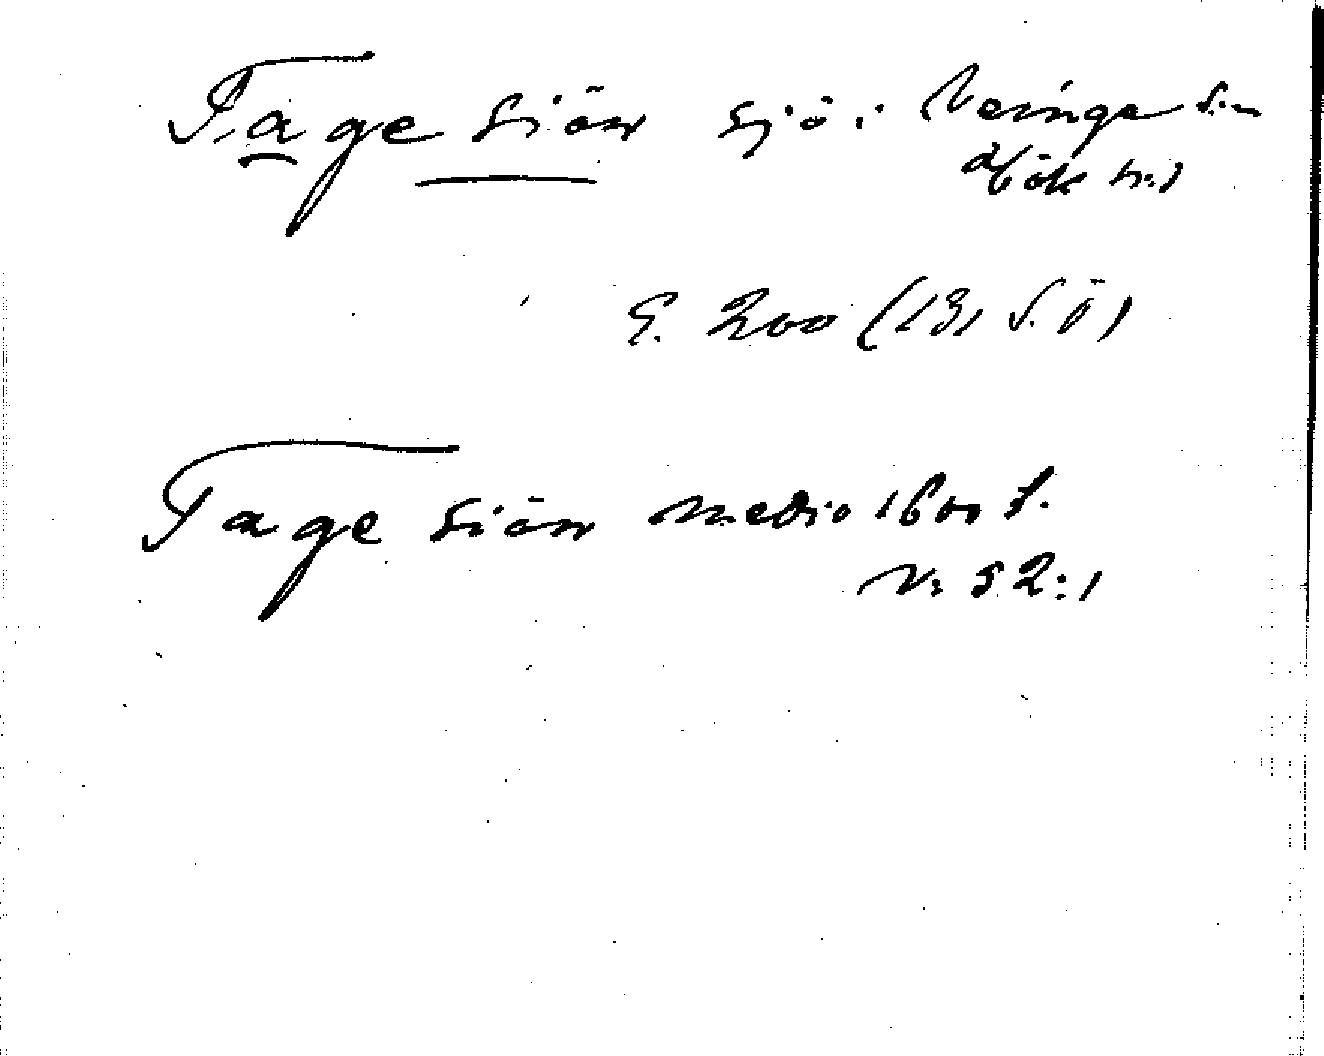 Tage siön sjö i Veinge s:n
Hök h:d
E. 200 (131 S. Ö)
Tage siön medio 1600 t.
N: 52:1